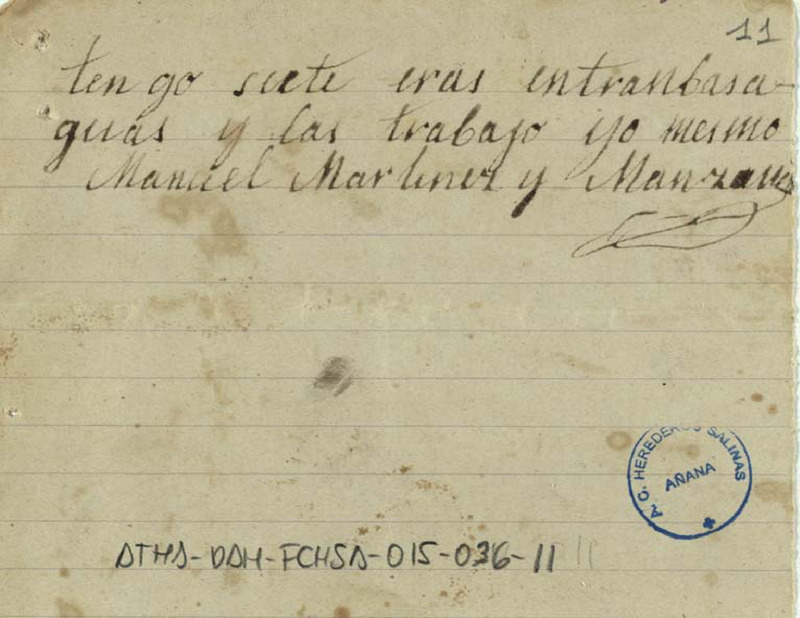 11
tengo siete eras entranbasa-
guas y las trabajo yo mesmo
Manuel Martinez y Manzano
A. G. HEREDEROS SALINAS
AÑANA
ATHA-DAH-FCHSA-015-036-11